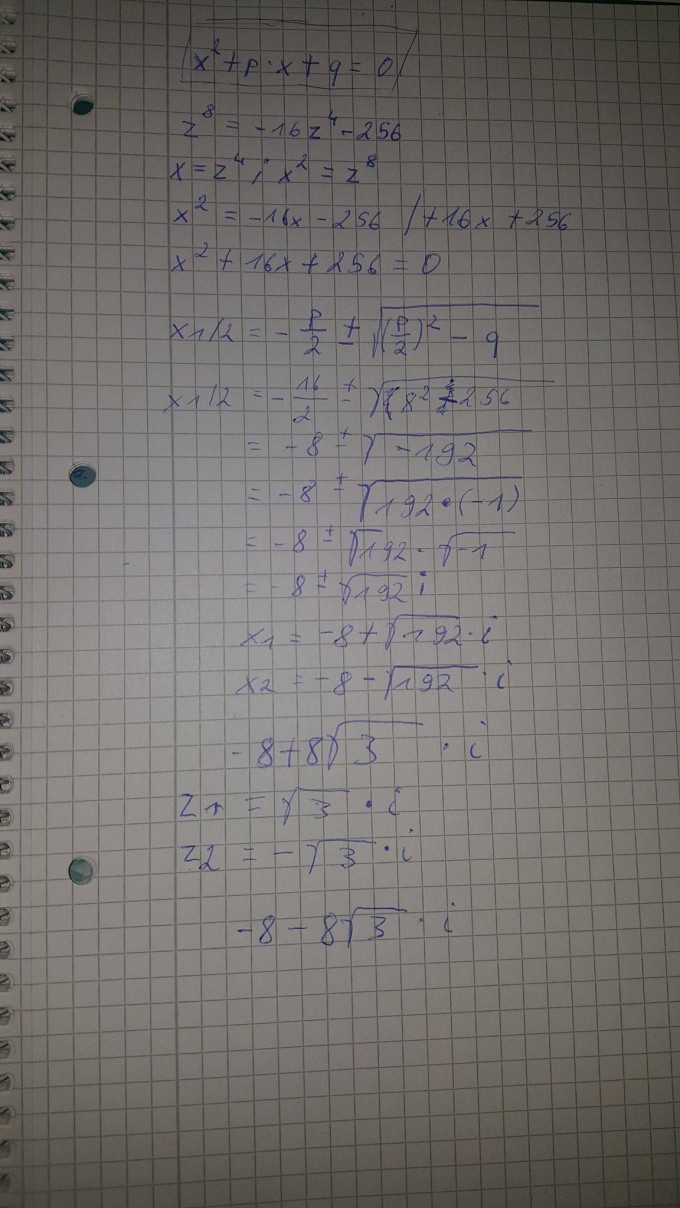 x² + p·x + q = 0
z⁸ = -16z⁴ - 256
x = z⁴ ; x² = z⁸
x² = -16x - 256 / +16x + 256
x² + 16x + 256 = 0
x1/2 = - p/2 ± √((p/2)² - q)
x1/2 = - 16/2 ± √(8² - 256)
= -8 ± √(-192)
= -8 ± √(192·(-1))
= -8 ± √192 · √-1
= -8 ± √192 i
x1 = -8 + √192 · i
x2 = -8 - √192 · i
-8 + 8√3 · i
z1 = √3 · i
z2 = -√3 · i
-8 - 8√3 · i